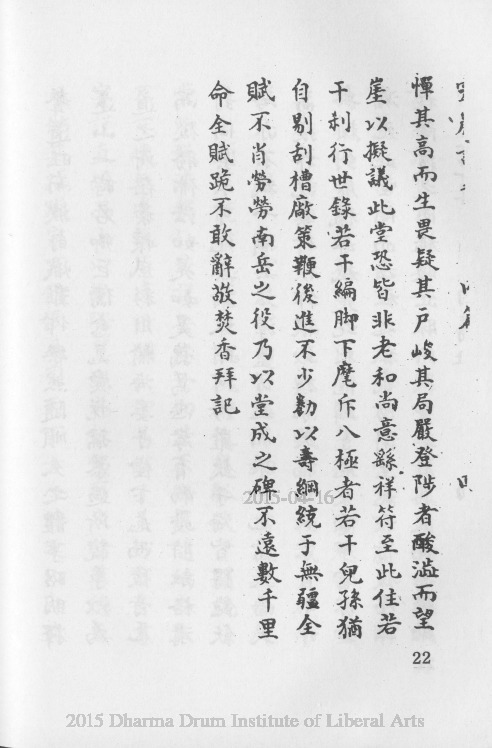 憚其高而生畏疑其戶峻其局嚴登陟者酸澁而望
崖以擬議此堂恐皆非老和尚意繇祥符至此住若
干剎行世錄若干編脚下麾斥八極者若干兒孫猶
自剔刮槽廠策鞭後進不少勌以壽綱統于無疆全
賦不肖勞勞南岳之役乃以堂成之碑不遠數千里
命全賦跪不敢辭敬焚香拜記
22
2015-04-16
2015 Dharma Drum Institute of Liberal Arts